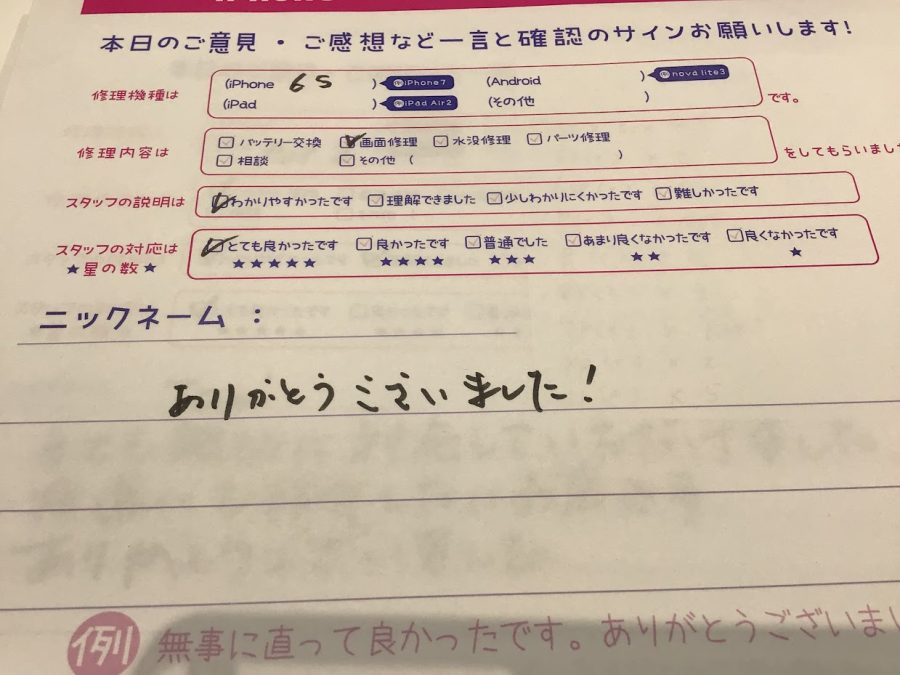 本日のご意見・ご感想など一言と確認のサインお願いします!
修理機種は (iPhone 6S ) iPhone7 (Android ) nova lite3
(iPad ) iPad Air2 (その他 ) です。
修理内容は バッテリー交換 画面修理 水没修理 パーツ修理
相談 その他 ( ) をしてもらいまし
スタッフの説明は わかりやすかったです 理解できました 少しわかりにくかったです 難しかったです
スタッフの対応は とても良かったです 良かったです 普通でした あまり良くなかったです 良くなかったです
★星の数★ ★★★★★ ★★★★ ★★★ ★★ ★
ニックネーム：
ありがとうございました!
例 無事に直って良かったです。ありがとうございまし